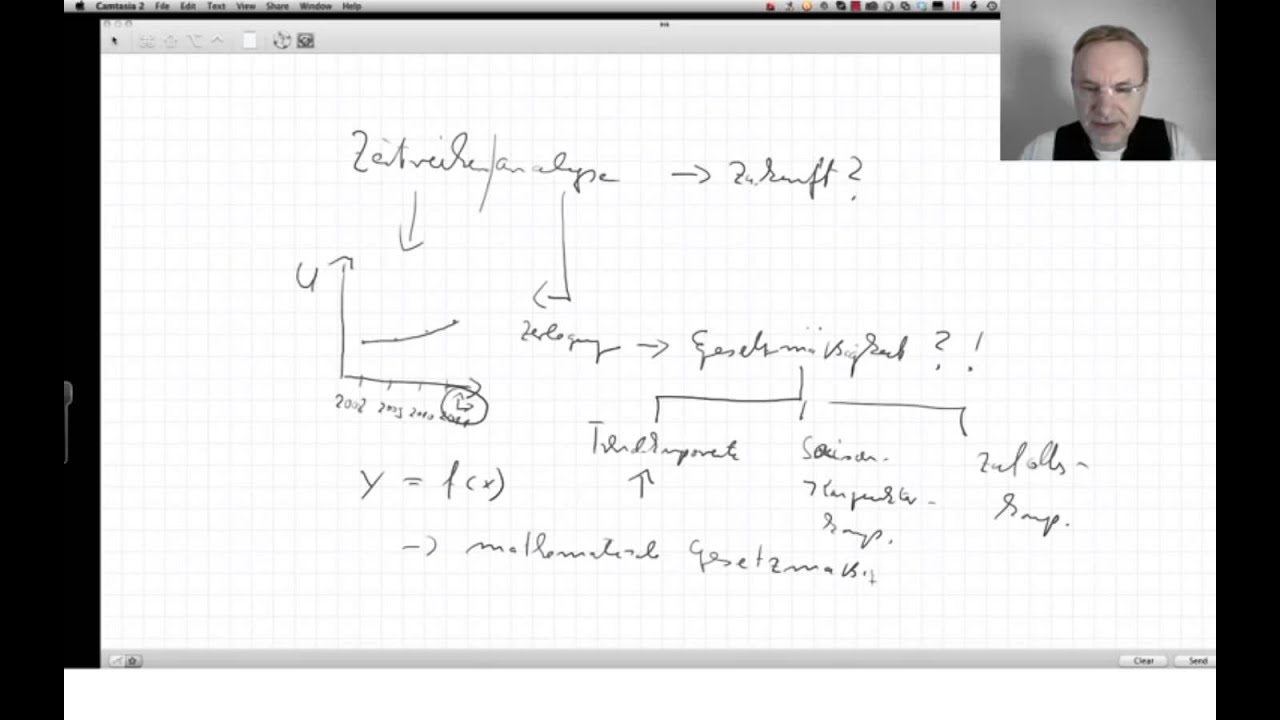 Camtasia 2 File Edit Text View Share Window Help
Ink
Zeitreihen/analyse → Zukunft?
U
Zerlegung → Gesetzmäßigkeit ? !
2010
Trendkomponente Saison- Zufalls-
Y = f(x) Konjunktur- komp.
komp.
→ mathematische Gesetzmäßig
Clear Send